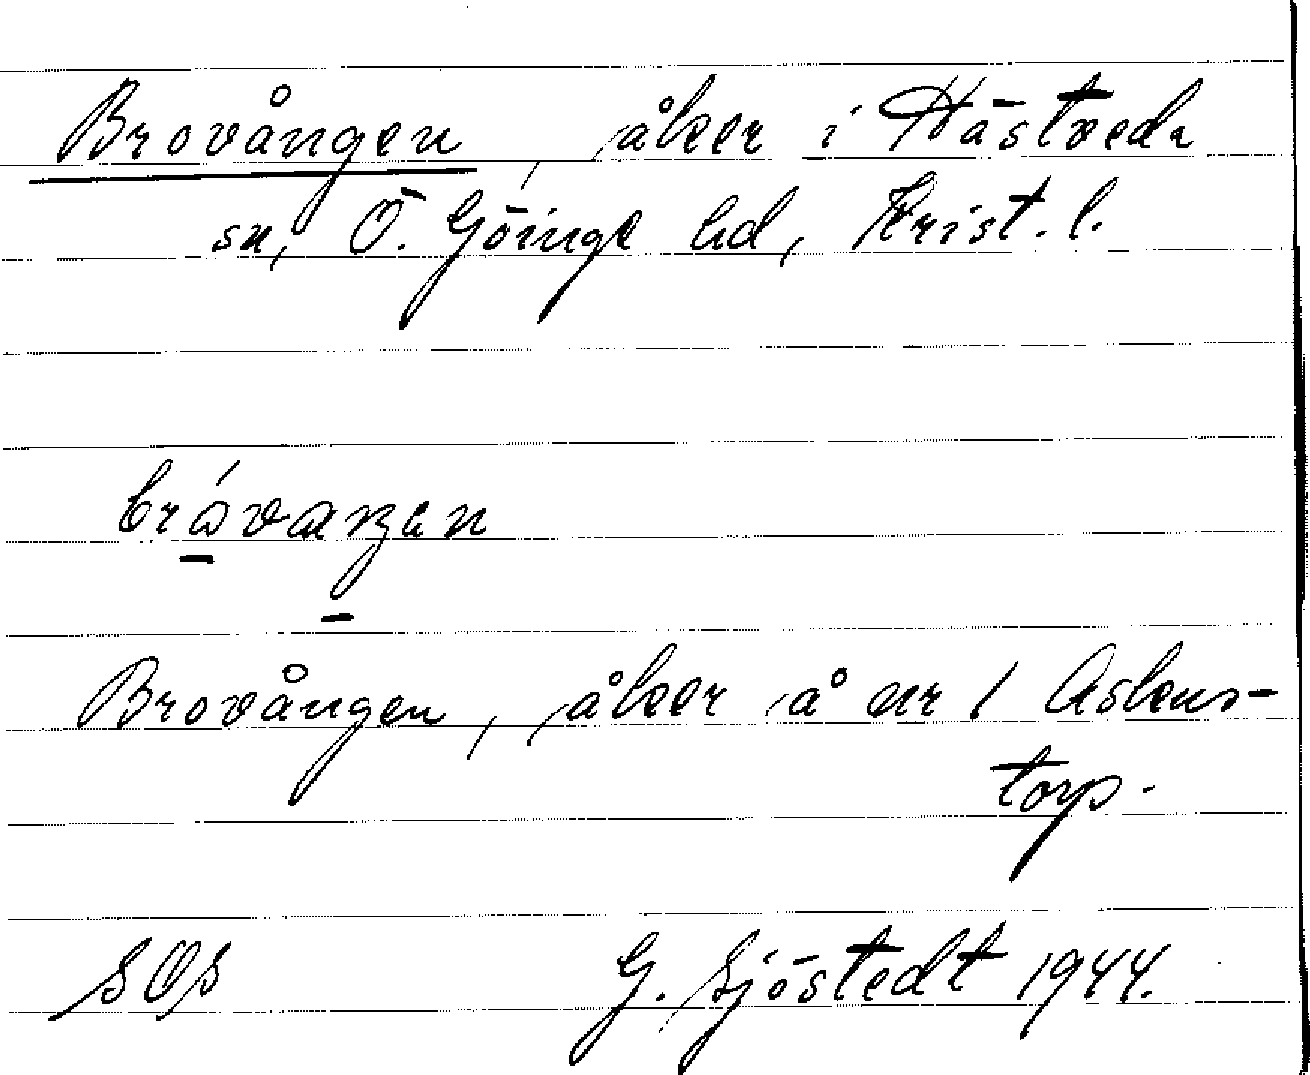 Brovången, åker i Hästveda
sn, Ö. Göinge hd, Krist. l.
Brovången, åker å nr 1 Askens-
torp.
SOS G. Sjöstedt 1944.